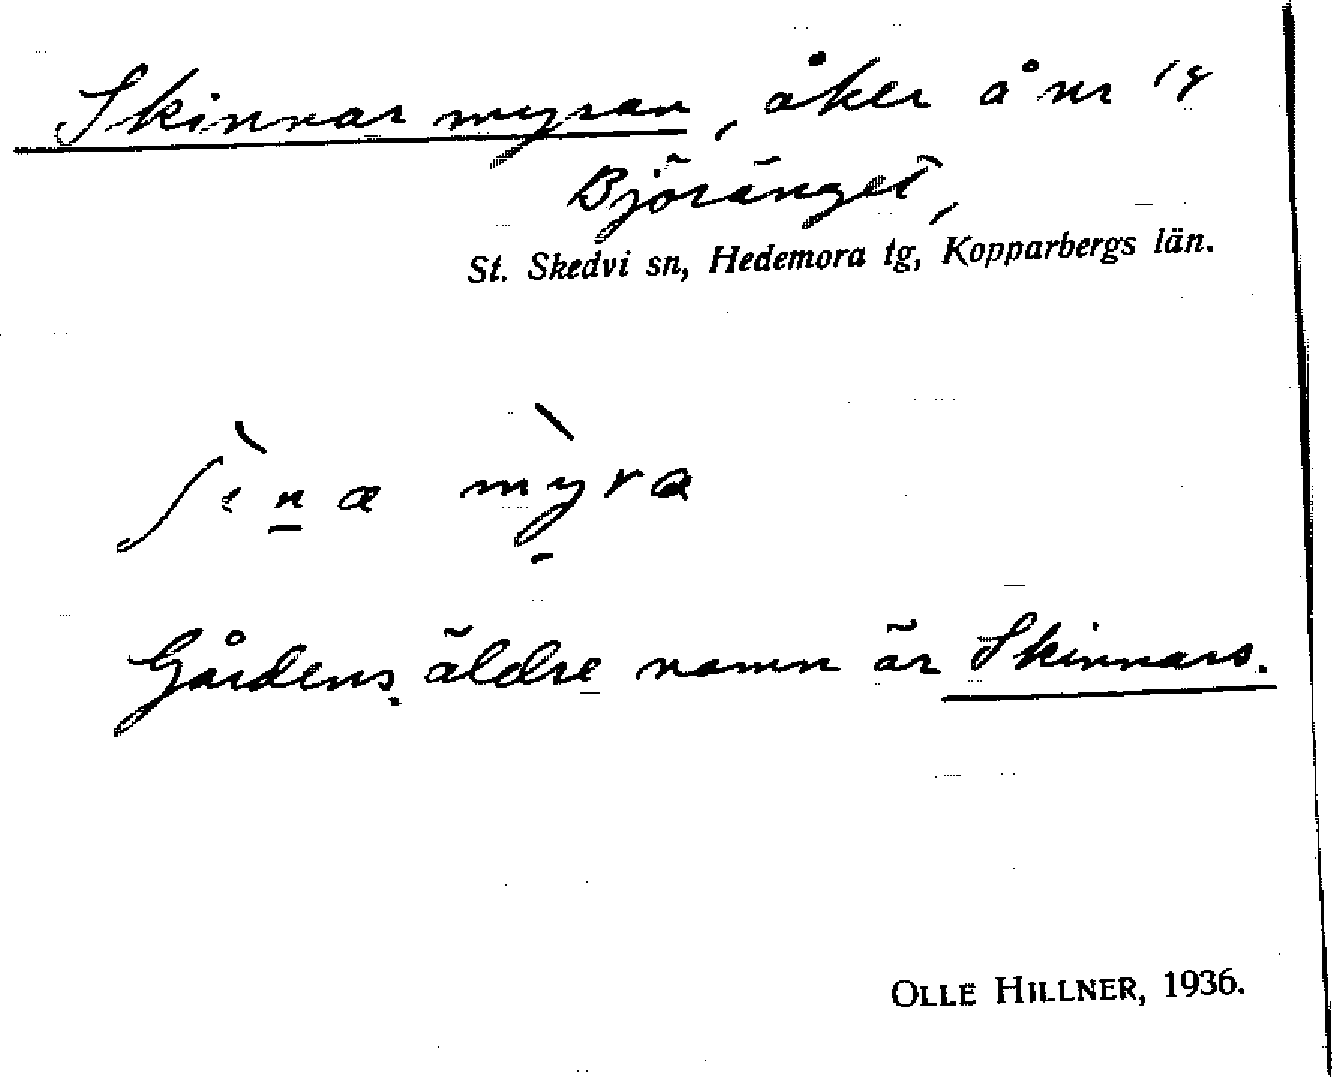 Skinnar myran, åker å nr 1 g
Björänget,
St. Skedvi sn, Hedemora tg, Kopparbergs län.
mỳra
Gårdens äldre namn är Skinnars.
OLLE HILLNER, 1936.